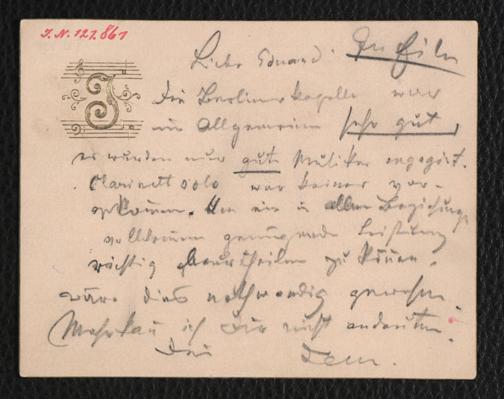 J.N. 127.861
J
Lieber Eduard! In Eile
Die Berliner Kapelle war
im Allgemeinen sehr gut,
es wurden nur gute Musiker engagirt.
Clarinettsolo war keines vor-
gekommen. Um sie in allen Beziehungen
vollkommen genügende Leistung
richtig beurtheilen zu können,
wäre dies nothwendig gewesen.
Mehr kan ich Dir nicht andeuten.
Dein